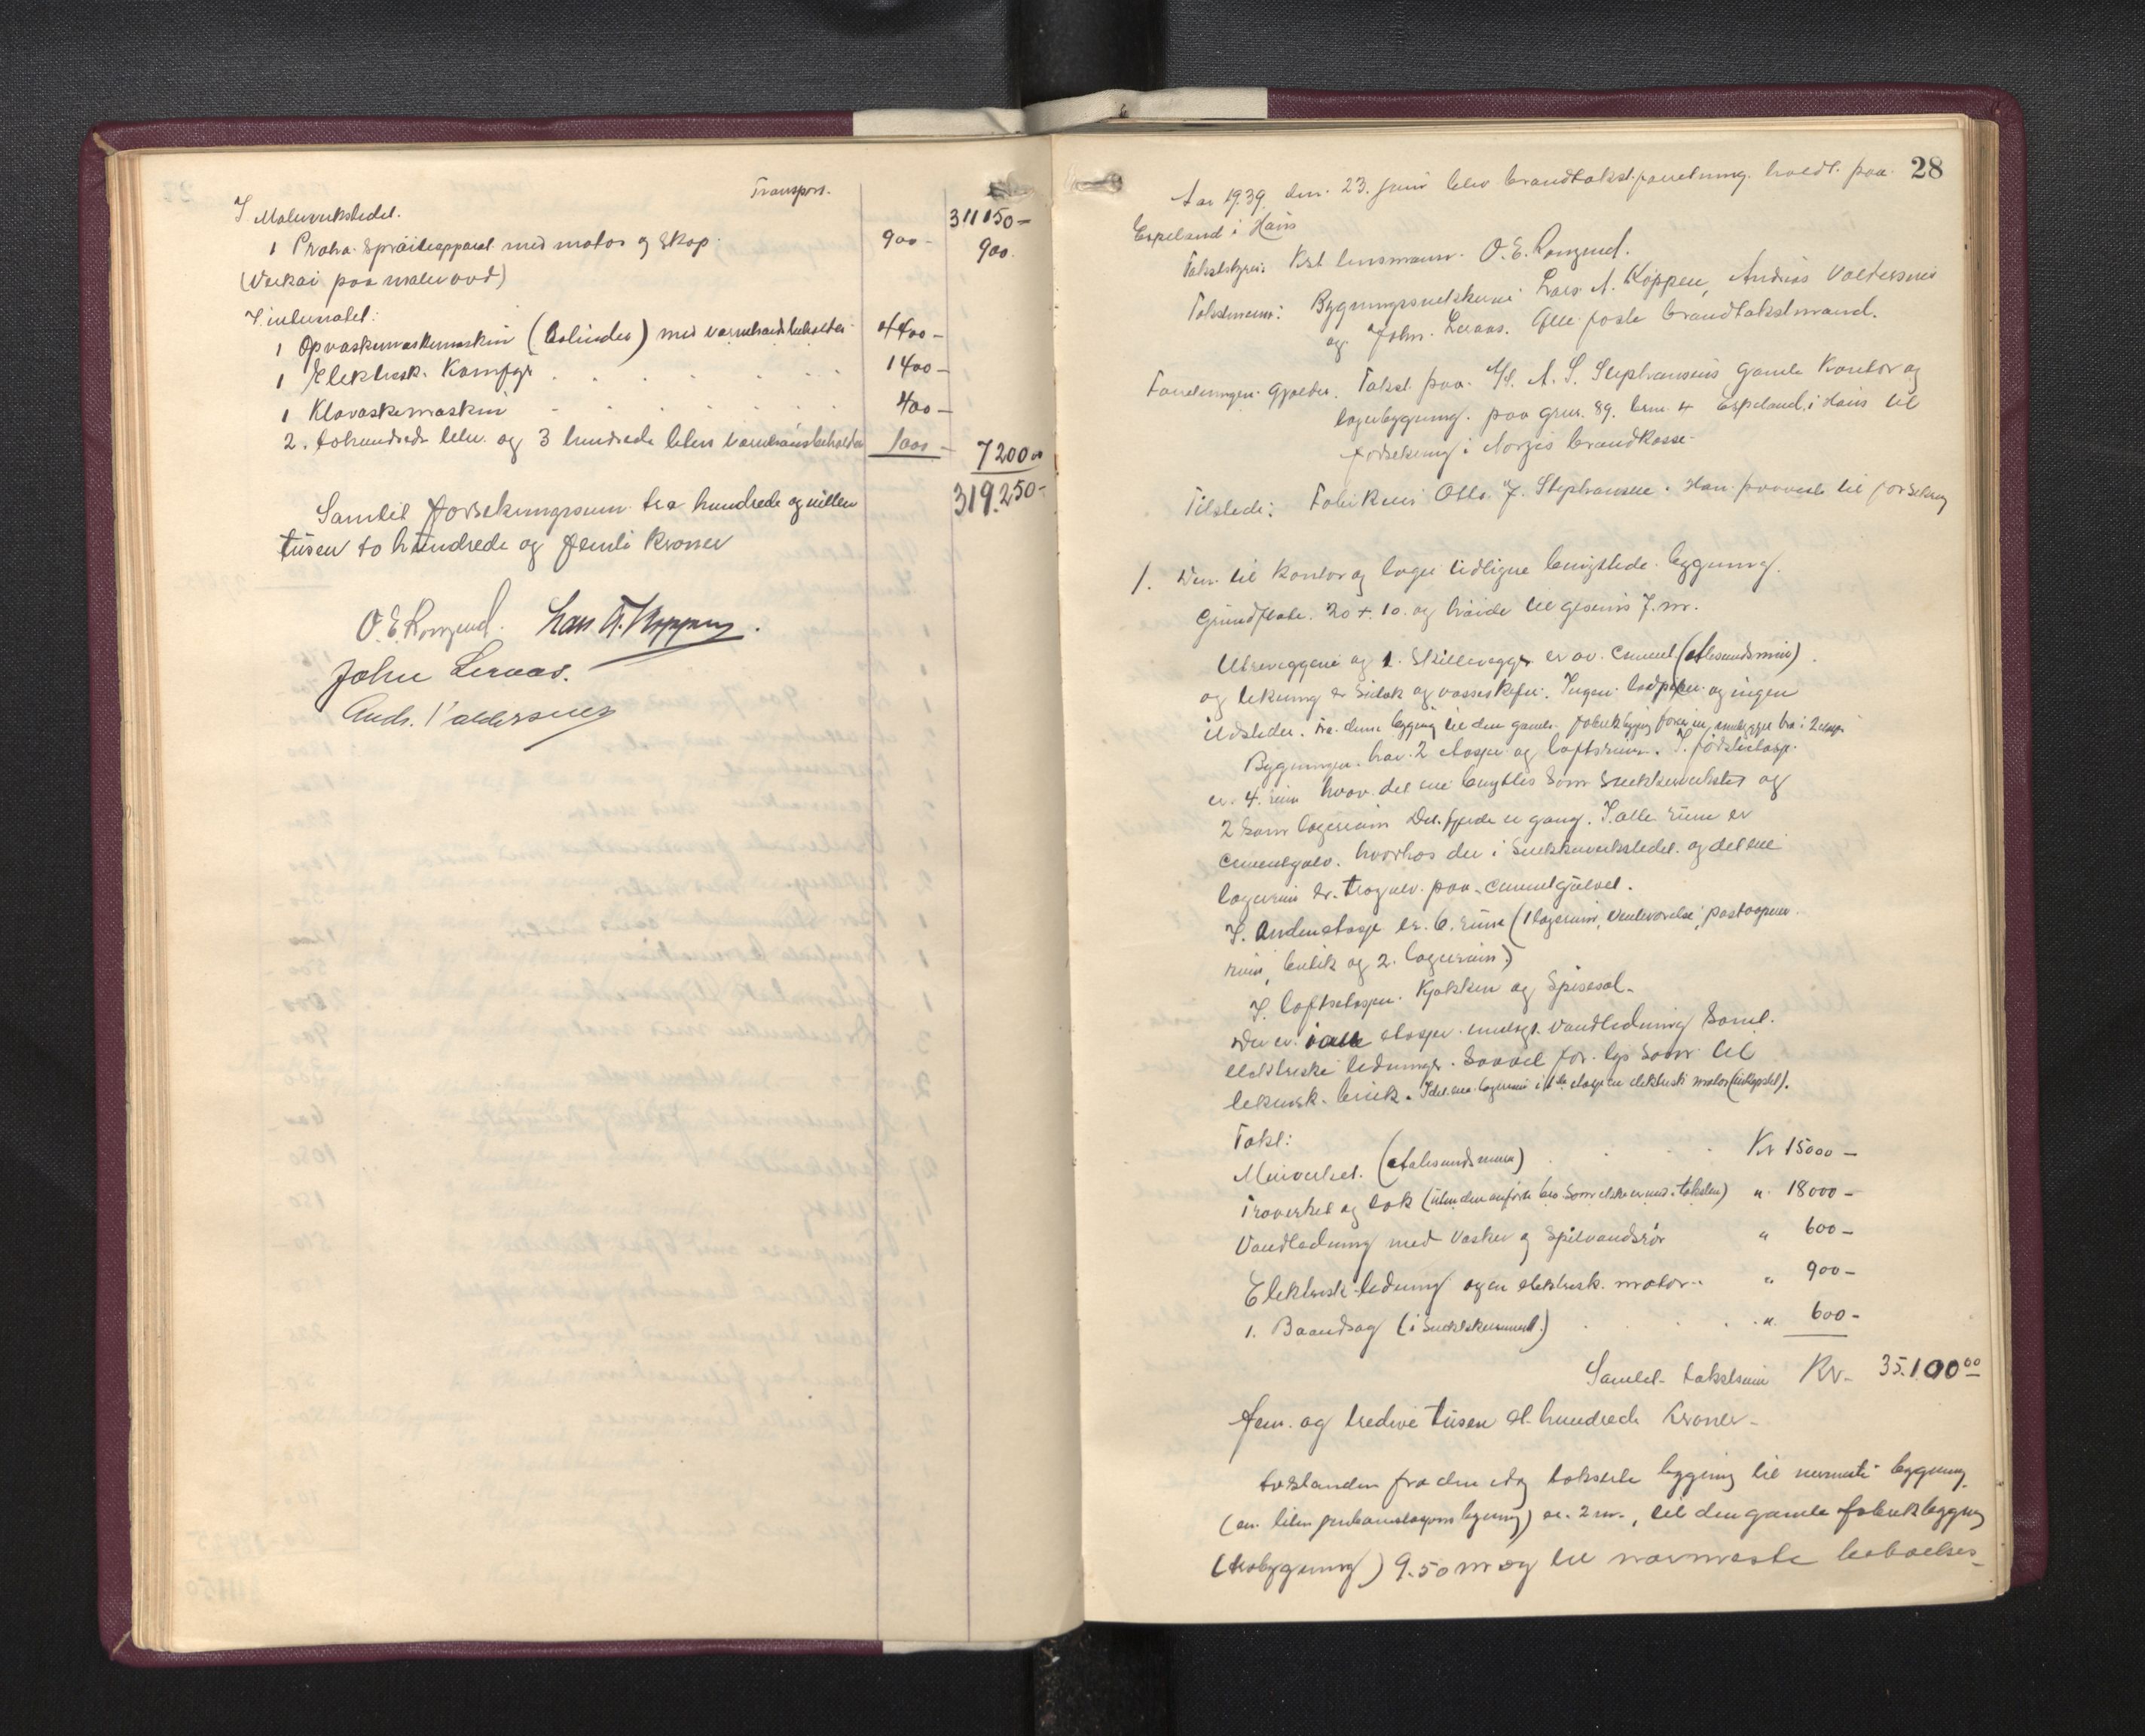 Transport.
311150-
I Maleverkstedet.
1 Sprøiteapparat med motor og Skap. 900- 900.
(Verkai paa malerovd)
I internatet:
1 Opvaskemaskin (Bolinder) med varmtvandsbeholder 4400-
1 Elektrisk Komfyr . . . . . 1400-
1 Klovaskemaskin . . . . . 400-
2. tohundrede liter og 3 hundrede liters varmtvansbeholder 1000- 7200 00
319.250-
Samlet forsekringssum tre hundrede og nitten
tusen to hundrede og femti kroner
O. E. Romgrud. Lars A. Koppen.
John Leraas.
Andr. Valdersnes
28
Aar 1939. den. 23. juni blev brandtakstforretning holdt paa
Espeland i Haus
Takststyrer: Kst lensmann O. E. Romgrud.
Takstmenn: Bygningssnekkerne Lars A. Koppen, Andreas Valdersnes
og John Leraas. Alle faste brandtakstmænd.
Forretningen gjælder. Takst paa A/S. A. S. Stephansens gamle Kontor og
lagerbygning. paa grnr. 89. brnr. 4 Espeland i Haus til
forsekring i Norges brandkasse-
Tilstede: Fabrikeier Otto J. Stephansen. Han til forsekring
1. Den til Kontor og lager tidligere benyttede bygning.
Grundflate. 20 + 10. og høide til gesims 7. m.
Uteveggene og 1. Skillevegger er av. cement (Aalesundsmur).
og tekning er sutak og Ingen. og ingen
ildsteder. Fra denne bygning til den gamle fabrikbygning
Bygningen. har 2 etasjer og loftsrum. I. første etasje
er. 4. rum hvor det ene benyttes som Snekkerverksted og
2 som lagerrum Det fjerde er gang. I alle rum er
cementgulv. hvorhos der i Snekkerverkstedet og det ene
lagerrum er tregulv paa cementgulvet.
I. Anden etasje er. 6. rum (1 lagerrum,
rum, butik og 2. lagerrum.)
I. loftsetasjen. Kjøkken og Spisesal.
Der er i alle etasjer innlagt vandledning samt.
elektriske ledninger. Saavel for. lys som til
teknisk. bruk. I det ene lagerrum i 1ste etasje er elektrisk motor (inkapslet).
Takst:
Murverket. (Aalesundsmur) . . . Kr 15000-
Træverket og tak " 18000-
Vandledning med vasker og Spilvandsrør " 600-
Elektrisk ledning og en elektrisk motor.. " 900-
1. Baandsag . . . " 600-
Samlet takstsum Kr- 35.100 00
fem. og tredive tusen et hundrede kroner-
Avstanden fra den idag takserte bygning til nærmeste bygning
(en liten bygning) er. 2 m., til den gamle fabrikbygning
(trebygning) 9.50 m og til nærmeste beboelses-